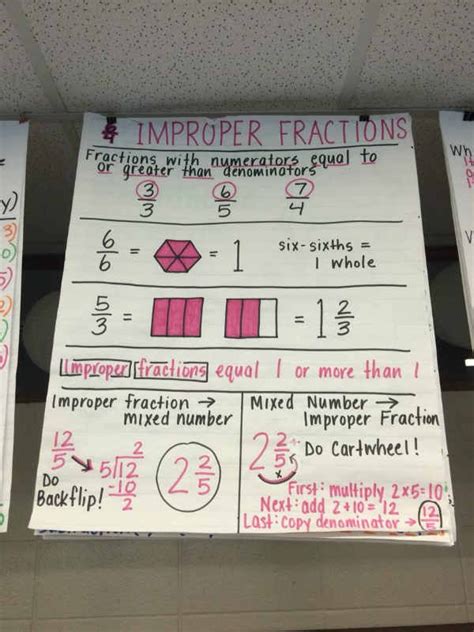 IMPROPER FRACTIONS
Fractions with numerators equal to
or greater than denominators
3/3 6/5 7/4
6/6 = = 1 six-sixths =
1 whole
5/3 = = 1 2/3
Improper fractions equal 1 or more than 1
Improper fraction →
mixed number
12/5
2
5)12
-10
2
2 2/5
Do
Backflip!
Mixed Number →
Improper Fraction
2 2/5 + x
Do Cartwheel!
First: multiply 2x5=10
Next: add 2+10 = 12
Last: copy denominator → 12/5
Wh